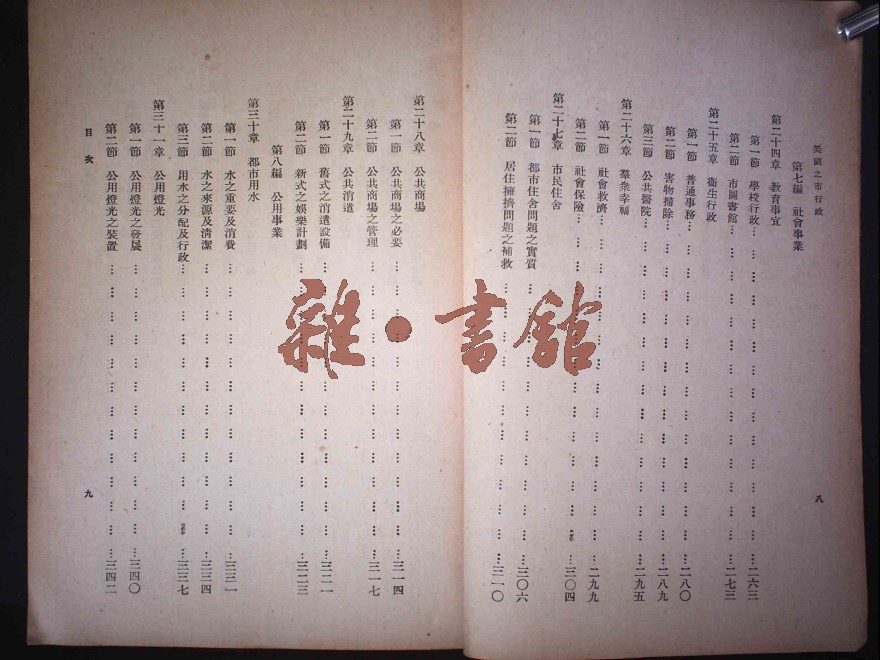 美國之市行政
八
第七編 社會事業
第二十四章 教育事宜
第一節 學校行政…………二六三
第二節 市圖書館…………二七三
第二十五章 衞生行政
第一節 普通事務…………二八〇
第二節 害物掃除…………二八九
第三節 公共醫院…………二九五
第二十六章 羣衆幸福
第一節 社會救濟…………二九九
第二節 社會保險…………三〇四
第二十七章 市民住舍
第一節 都市住舍問題之實質…………三〇六
第二節 居住擁擠問題之補救…………三一〇
第二十八章 公共商場
第一節 公共商場之必要…………三一四
第二節 公共商場之管理…………三一七
第二十九章 公共消遣
第一節 舊式之消遣設備…………三二一
第二節 新式之娛樂計劃…………三二三
第八編 公用事業
第三十章 都市用水
第一節 水之重要及消費…………三三一
第二節 水之來源及清潔…………三三四
第三節 用水之分配及行政…………三三七
第三十一章 公用燈光
第一節 公用燈光之發展…………三四〇
第二節 公用燈光之裝置…………三四二
目次
九
雜·書館